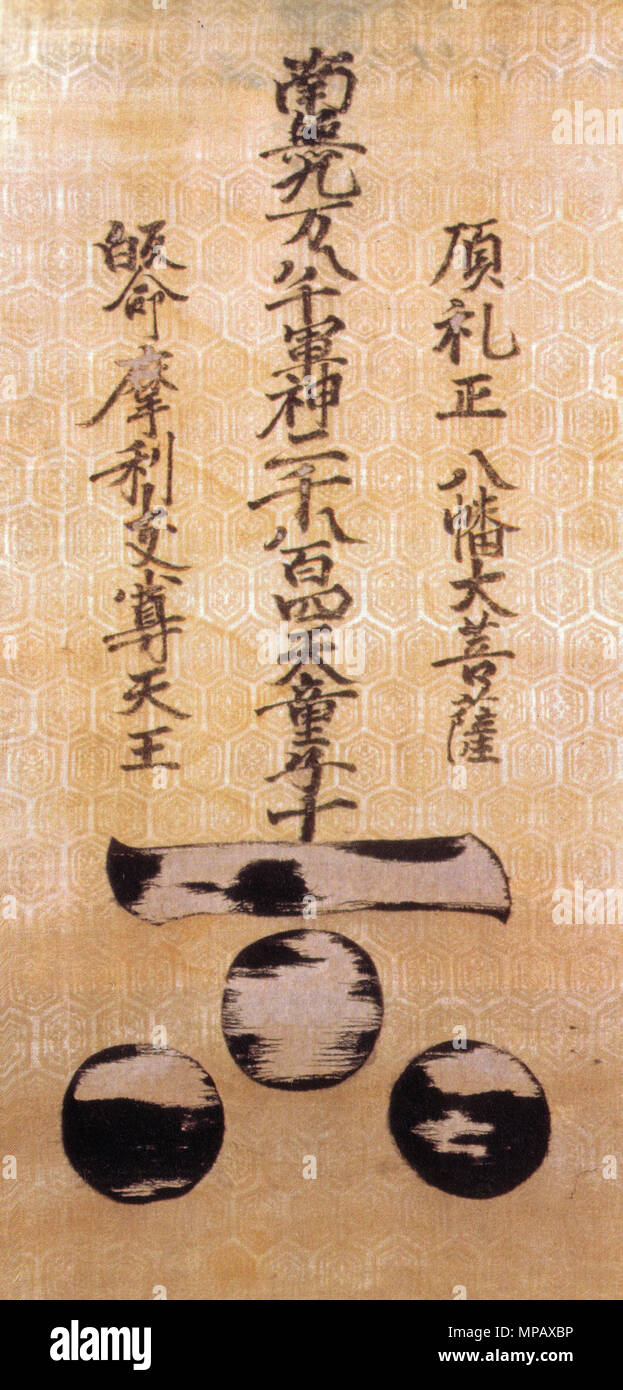 頂礼正八幡大菩薩
南無九万八千軍神二千八百四天童子十
皈命摩利支尊天王
alamy
Image ID: MPAXBP
www.alamy.com